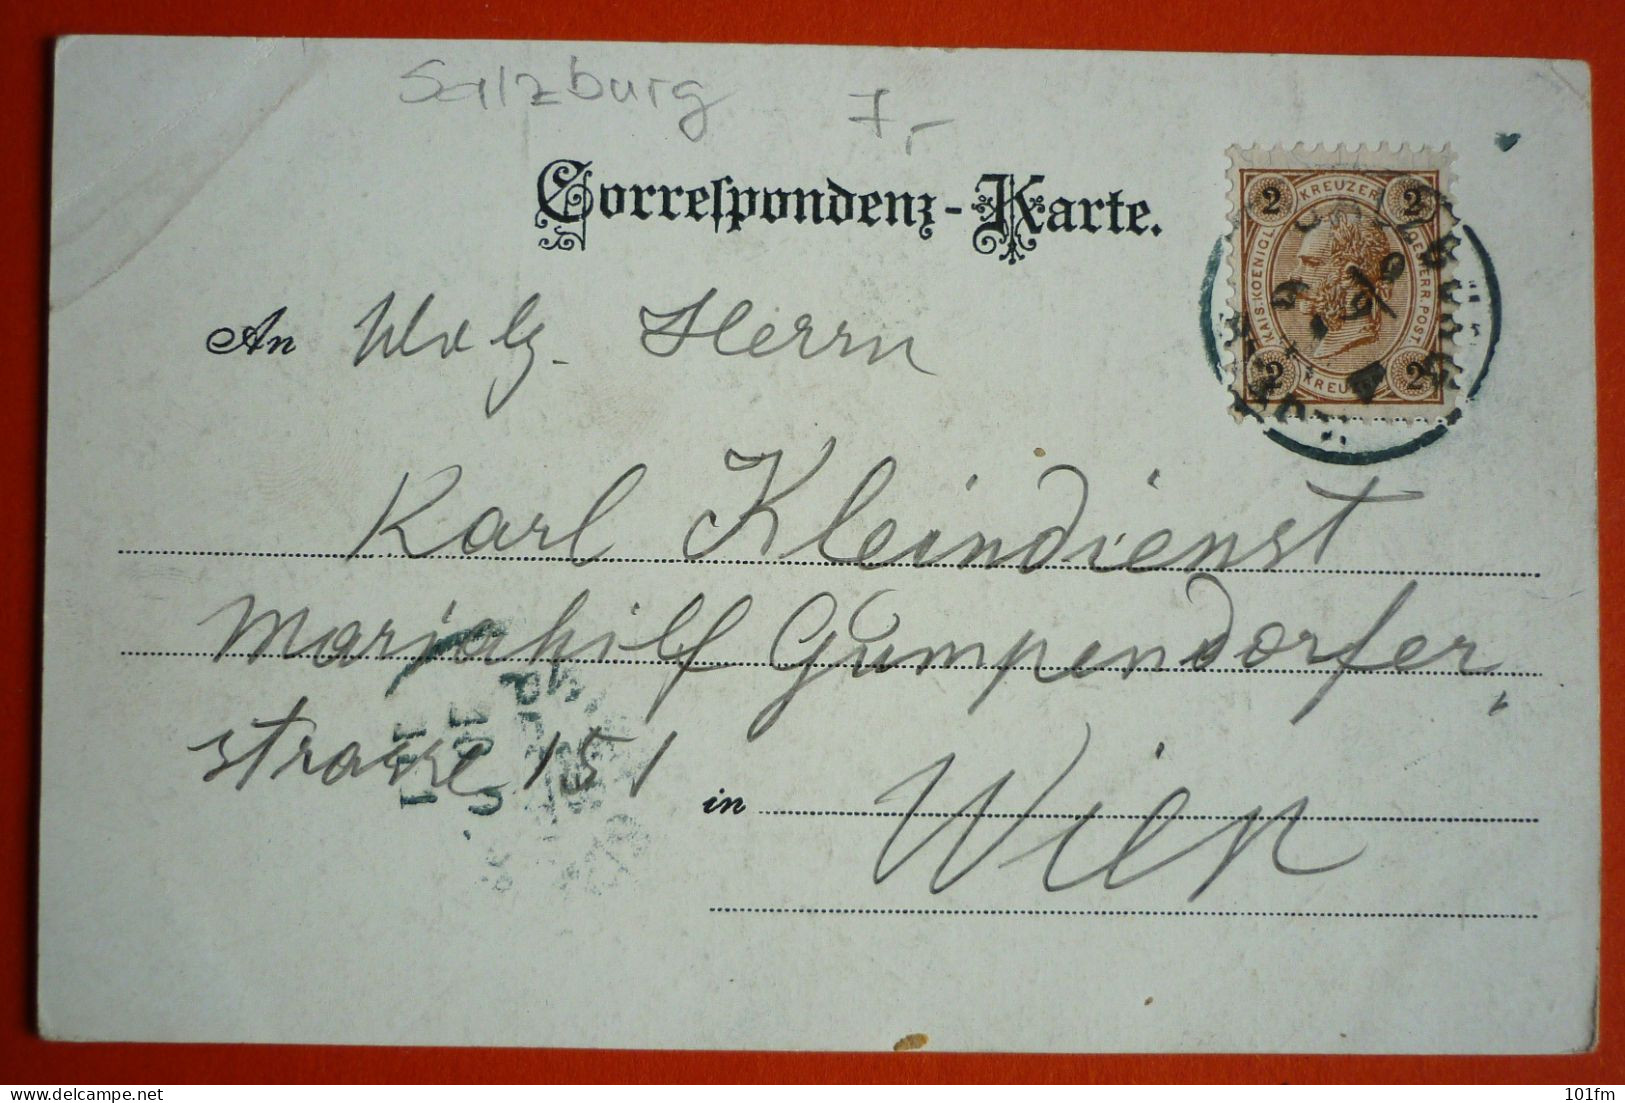 Salzburg 7,-
Correspondenz-Karte.
2 KREUZER 2
KAIS. KOENIGL. OESTERR. POST.
2 KREUZER 2
An Wolg. Herrn
Karl Kleindienst
Mariahilf Gumpendorfer
strasse 151
in Wien
101fm